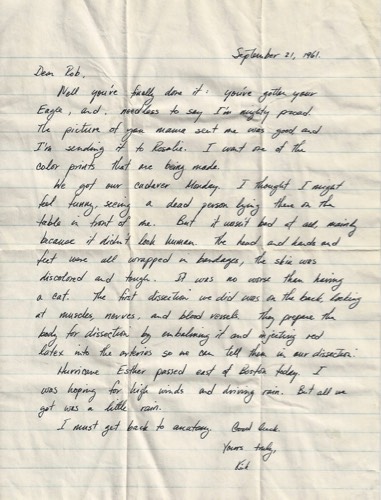 September 21, 1961.
Dear Rob,
Well you've finally done it; you've gotten your
Eagle, and, needless to say I'm mighty proud.
The picture of you mama sent me was good and
I'm sending it to Rosalie. I want one of the
color prints that are being made.
We got our cadaver Monday. I thought I might
feel funny, seeing a dead person lying there on the
table in front of me. But it wasn't bad at all, mainly
because it didn't look human. The head and hands and
feet were all wrapped in bandages, the skin was
discolored and tough. It was no worse than having
a cat. The first dissection we did was on the back looking
at muscles, nerves, and blood vessels. They prepare the
body for dissection by embalming it and injecting red
latex into the arteries so we can tell them in our dissection.
Hurricane Esther passed east of Boston today. I
was hoping for high winds and driving rain. But all we
got was a little rain.
I must get back to anatomy. Good luck.
Yours truly,